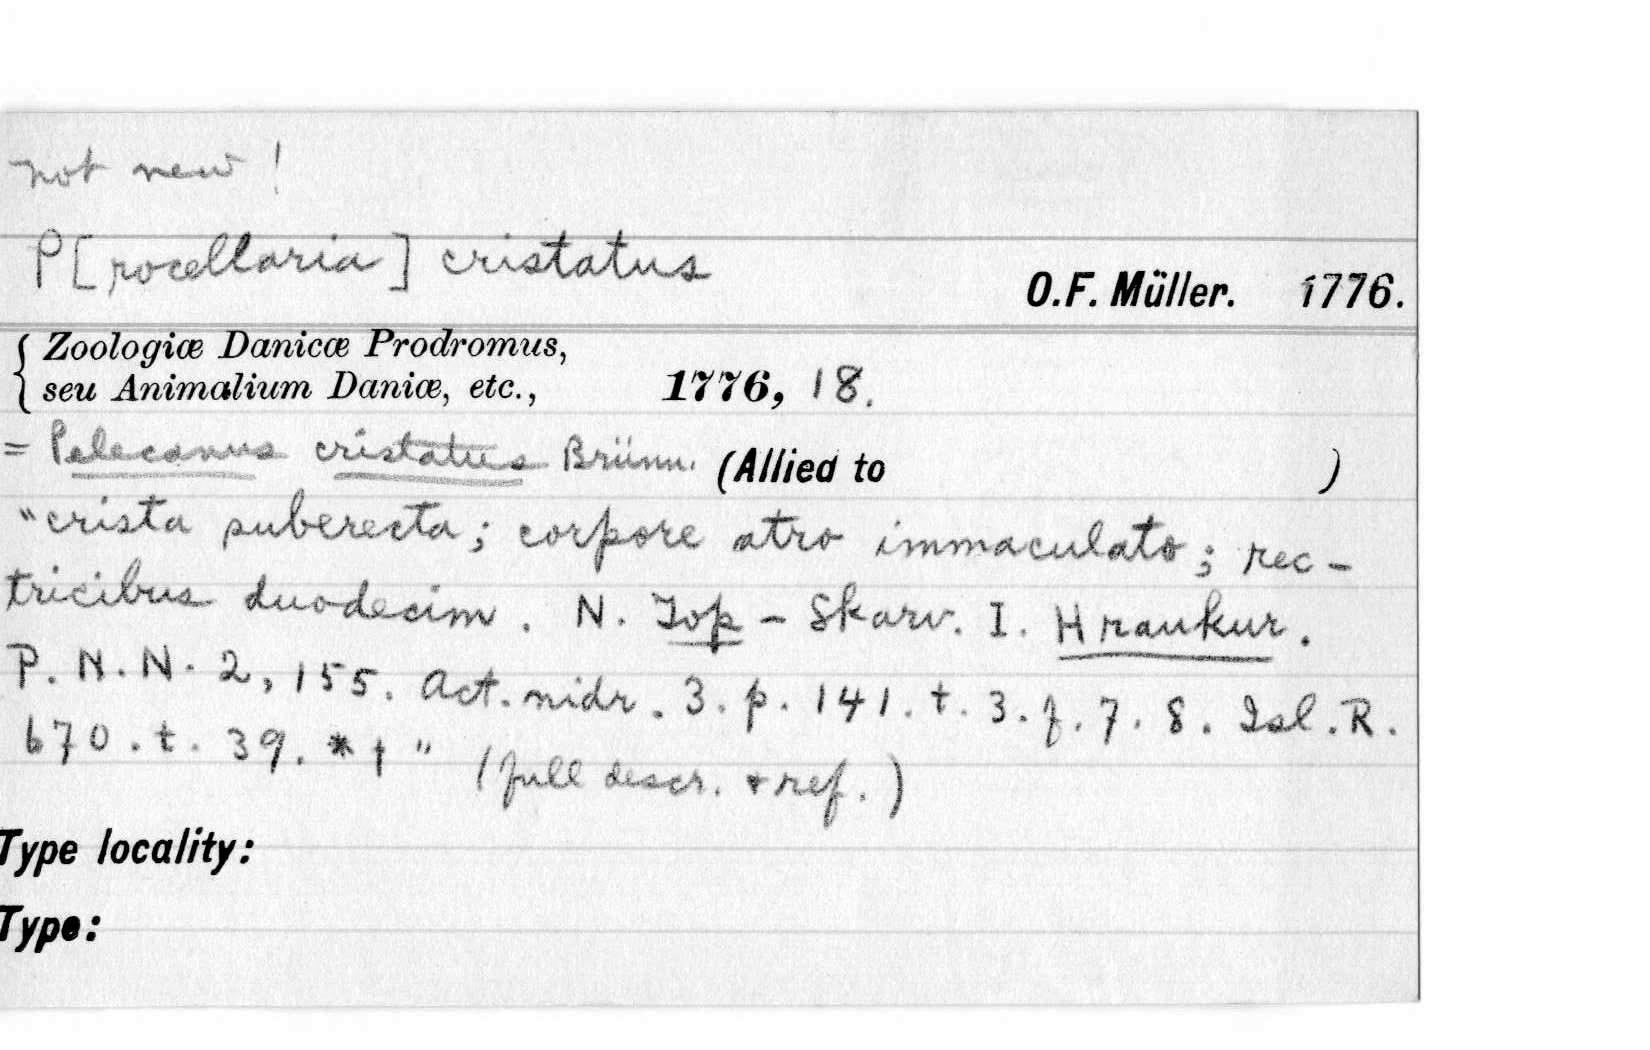 not new!
P[rocellaria] cristatus
O.F. Müller. 1776.
Zoologiæ Danicæ Prodromus,
seu Animalium Daniæ, etc., 1776, 18.
= Pelecanus cristatus Brünn. (Allied to )
"crista suberecta; corpore atro immaculato; rec-
tricibus duodecim. N. Top - Skarv. I. Hraukur.
P. N. N. 2, 155. Act. nidr. 3. p. 141. t. 3. f. 7. 8. Isl. R.
670. t. 39. * † " (full descr. + ref.)
Type locality:
Type: